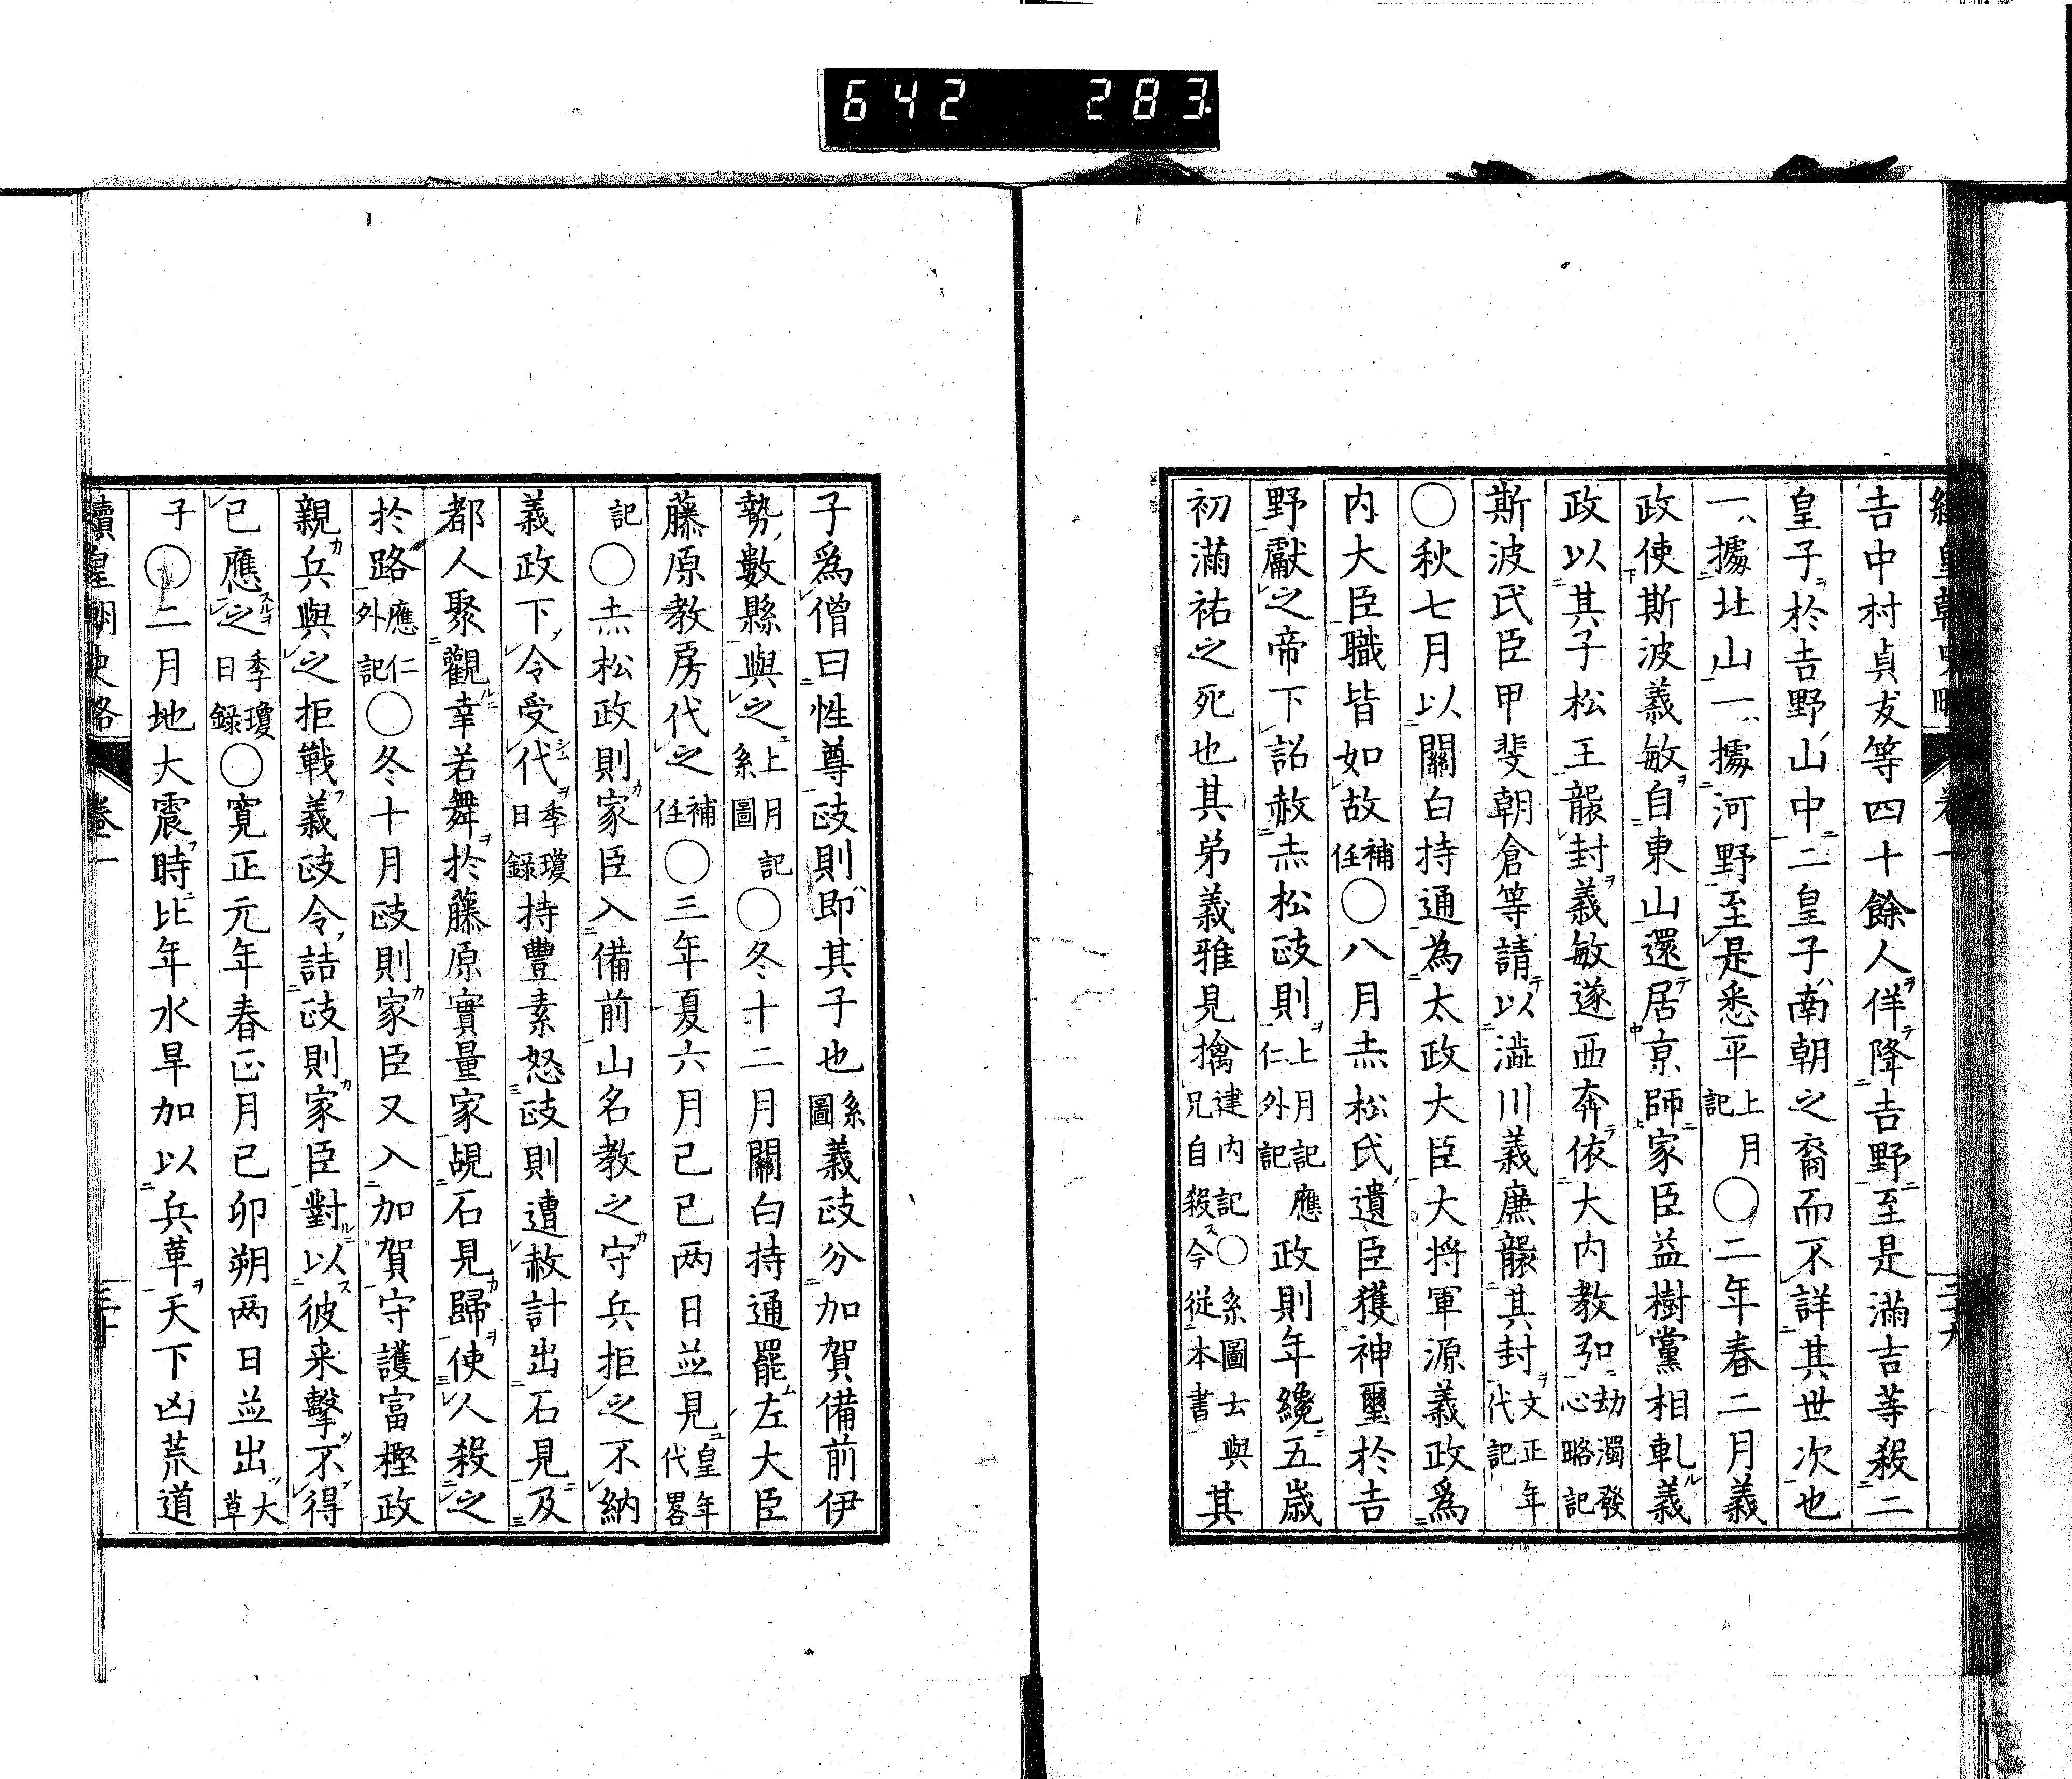 642 283
續皇朝史略 卷一 三十九
吉中村貞友等四十餘人佯降吉野至是滿吉等殺二
皇子於吉野山中二皇子南朝之裔而不詳其世次也
一據北山一據河野至是悉平上月記○二年春二月義
政使斯波義敏自東山還居京師家臣益樹黨相軋義
政以其子松王襲封義敏遂西奔依大内教弘劫濁發心略記
斯波氏臣甲斐朝倉等請以澁川義廉襲其封文正年代記
○秋七月以關白持通為太政大臣大將軍源義政爲
内大臣職皆如故補任○八月赤松氏遺臣獲神璽於吉
野獻之帝下詔赦赤松政則上月記應仁外記政則年纔五歲
初滿祐之死也其弟義雅見擒建内記○系圖云與兄自殺今從本書其
子爲僧曰性尊政則即其子也系圖義政分加賀備前伊
勢數縣與之上月記系圖○冬十二月關白持通罷左大臣
藤原教房代之補任○三年夏六月己巳两日並見皇年代畧
記○赤松政則家臣入備前山名教之守兵拒之不納
義政下令受代季瓊日録持豐素怒政則遭赦計出石見及
都人聚觀幸若舞於藤原實量家覘石見歸使人殺之
於路應仁外記○冬十月政則家臣又入加賀守護富樫政
親兵與之拒戰義政令詰政則家臣對以彼来擊不得
已應之季瓊日録○寬正元年春正月己卯朔两日並出大草
子○二月地大震時比年水旱加以兵革天下凶荒道
續皇朝史略 卷一 四十